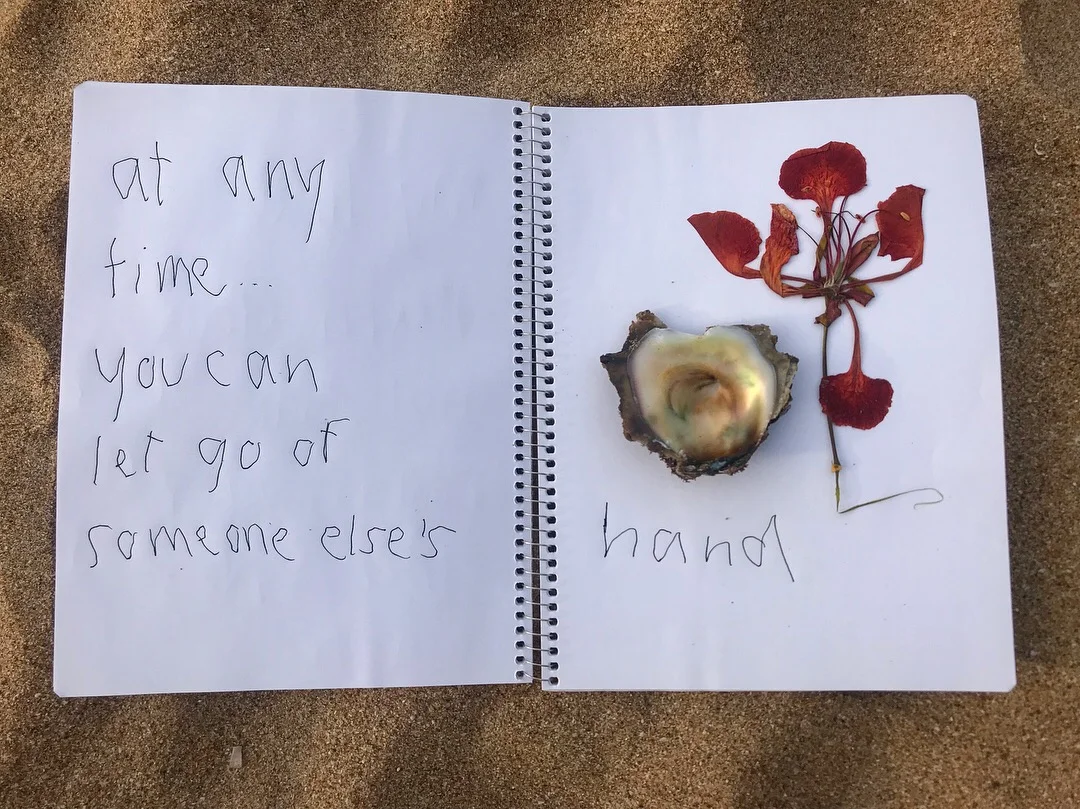 at any
time...
you can
let go of
someone else's
hand